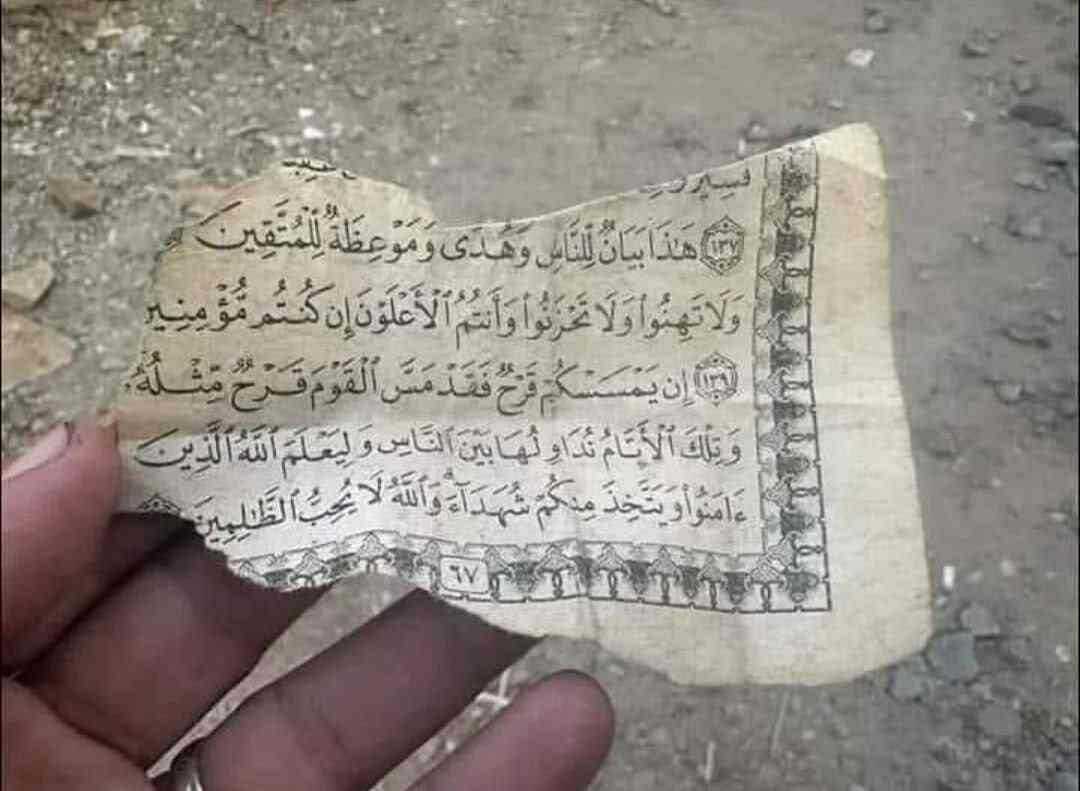 فَسِيرُوا
١٣٧ هَٰذَا بَيَانٌ لِّلنَّاسِ وَهُدًى وَمَوْعِظَةٌ لِّلْمُتَّقِينَ
وَلَا تَهِنُوا۟ وَلَا تَحْزَنُوا۟ وَأَنتُمُ ٱلْأَعْلَوْنَ إِن كُنتُم مُّؤْمِنِين
١٣٩ إِن يَمْسَسْكُمْ قَرْحٌ فَقَدْ مَسَّ ٱلْقَوْمَ قَرْحٌ مِّثْلُهُۥ
وَتِلْكَ ٱلْأَيَّامُ نُدَاوِلُهَا بَيْنَ ٱلنَّاسِ وَلِيَعْلَمَ ٱللَّهُ ٱلَّذِينَ
ءَامَنُوا۟ وَيَتَّخِذَ مِنكُمْ شُهَدَآءَ ۗ وَٱللَّهُ لَا يُحِبُّ ٱلظَّٰلِمِينَ
٦٧